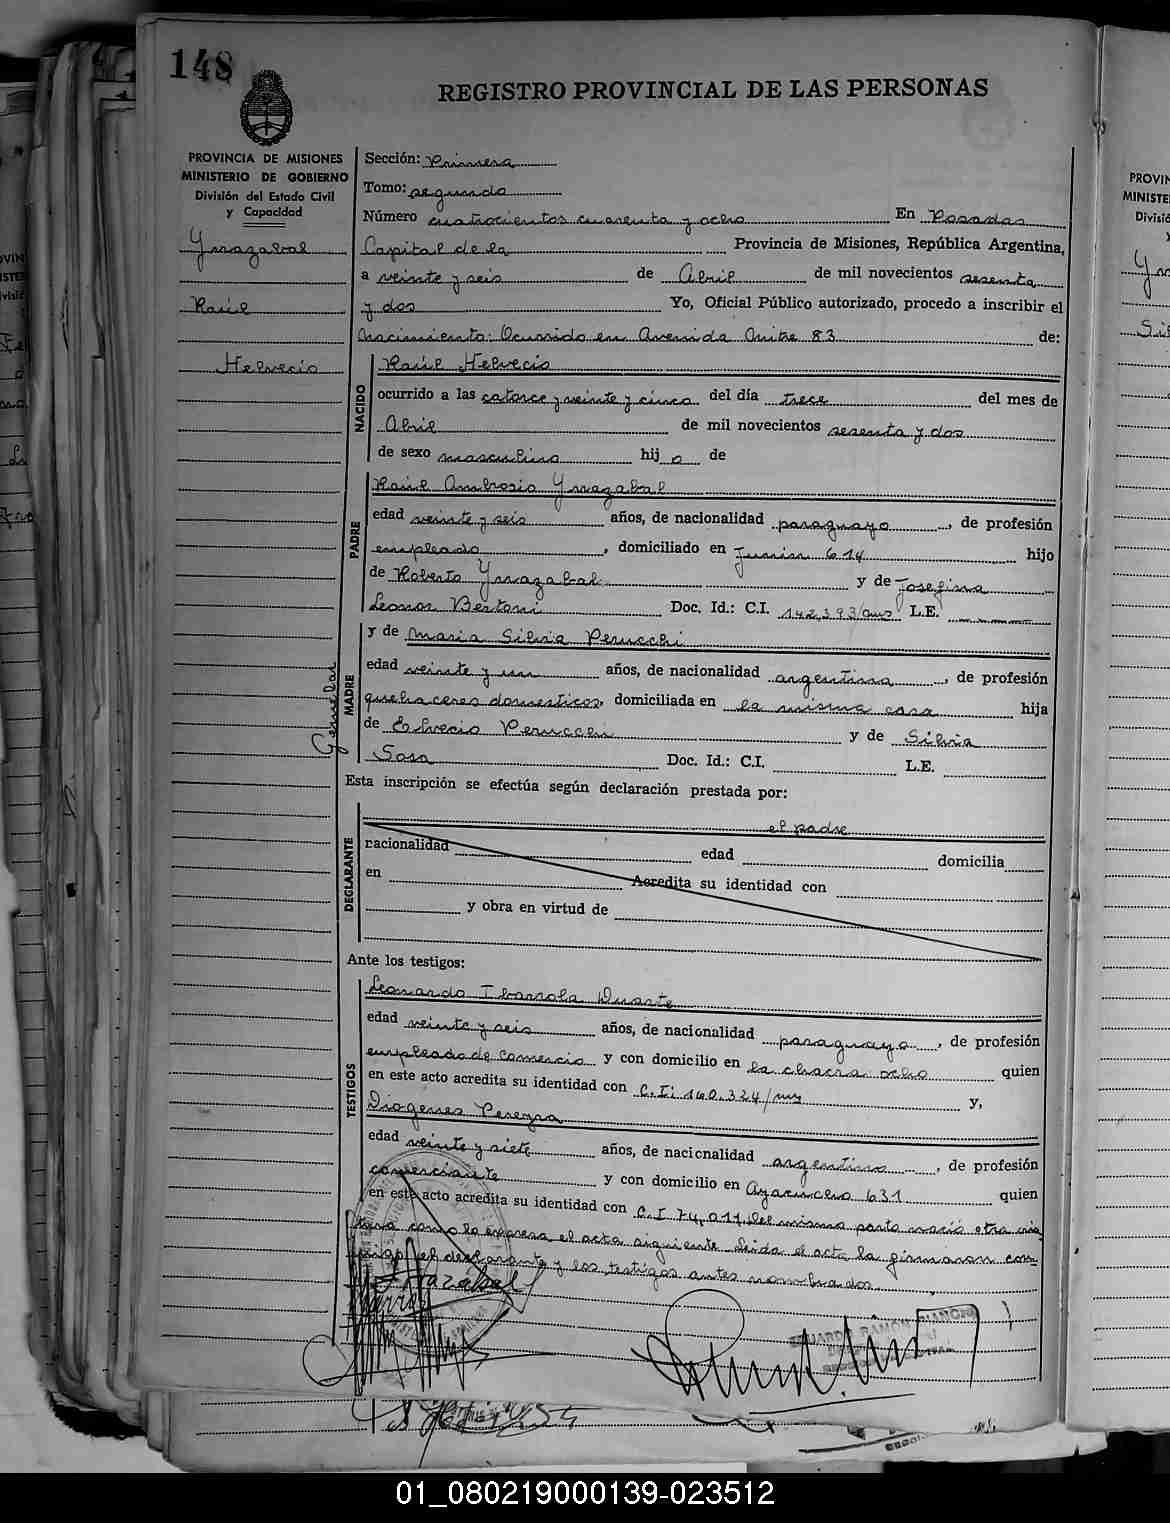 148
REGISTRO PROVINCIAL DE LAS PERSONAS
PROVINCIA DE MISIONES
MINISTERIO DE GOBIERNO
División del Estado Civil
y Capacidad
Yrrazabal
Raúl
Helvecio
Sección: Primera
Tomo: segundo
Número cuatrocientos cuarenta y ocho En Posadas
Capital de la Provincia de Misiones, República Argentina,
a veinte y seis de Abril de mil novecientos sesenta
y dos Yo, Oficial Público autorizado, procedo a inscribir el
Nacimiento: Ocurrido en Avenida Mitre 83 de:
NACIDO
Raúl Helvecio
ocurrido a las catorce y veinte y cinco del día trece del mes de
Abril de mil novecientos sesenta y dos
de sexo masculino hij o de
PADRE
Raúl Ambrosio Yrrazabal
edad veinte y seis años, de nacionalidad paraguayo, de profesión
empleado, domiciliado en Junin 614 hijo
de Roberto Yrrazabal y de Josefina
Leonor Bertoni Doc. Id.: C.I. 142.393/mns L.E.
MADRE
y de Maria Silvia Perucchi
edad veinte y un años, de nacionalidad argentina, de profesión
quehaceres domesticos, domiciliada en la misma casa hija
de Elvecio Perucchi y de Silvia
Sosa Doc. Id.: C.I. L.E.
Gemelar
Esta inscripción se efectúa según declaración prestada por:
DECLARANTE
el padre
nacionalidad edad domicilia
en Acredita su identidad con
y obra en virtud de
Ante los testigos:
TESTIGOS
Leonardo Ibarrola Duarte
edad veinte y seis años, de nacionalidad paraguayo, de profesión
empleado de Comercio y con domicilio en la chacra ocho quien
en este acto acredita su identidad con C.I: 160.324/mns y,
Diogenes Pereyra
edad veinte y siete años, de nacionalidad argentino, de profesión
comerciante y con domicilio en Ayacucho 631 quien
en este acto acredita su identidad con C.I 74.011. Del mismo parto nació otra cria
tura como lo expresa el acta siguiente. Leida el acta la firmaron con
migo, el declarante y los testigos antes nombrados.
Yrrazabal
EDUARDO RAMON
01_080219000139-023512